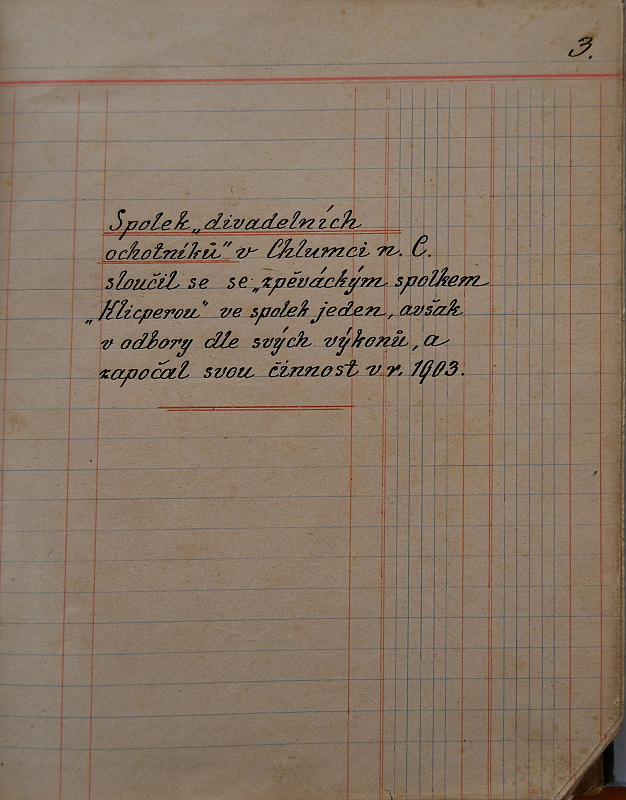 3.
Spolek „divadelních
ochotníků" v Chlumci n. C.
sloučil se se „zpěváckým spolkem
„Klicperou" ve spolek jeden, avšak
v odbory dle svých výkonů, a
započal svou činnost v r. 1903.